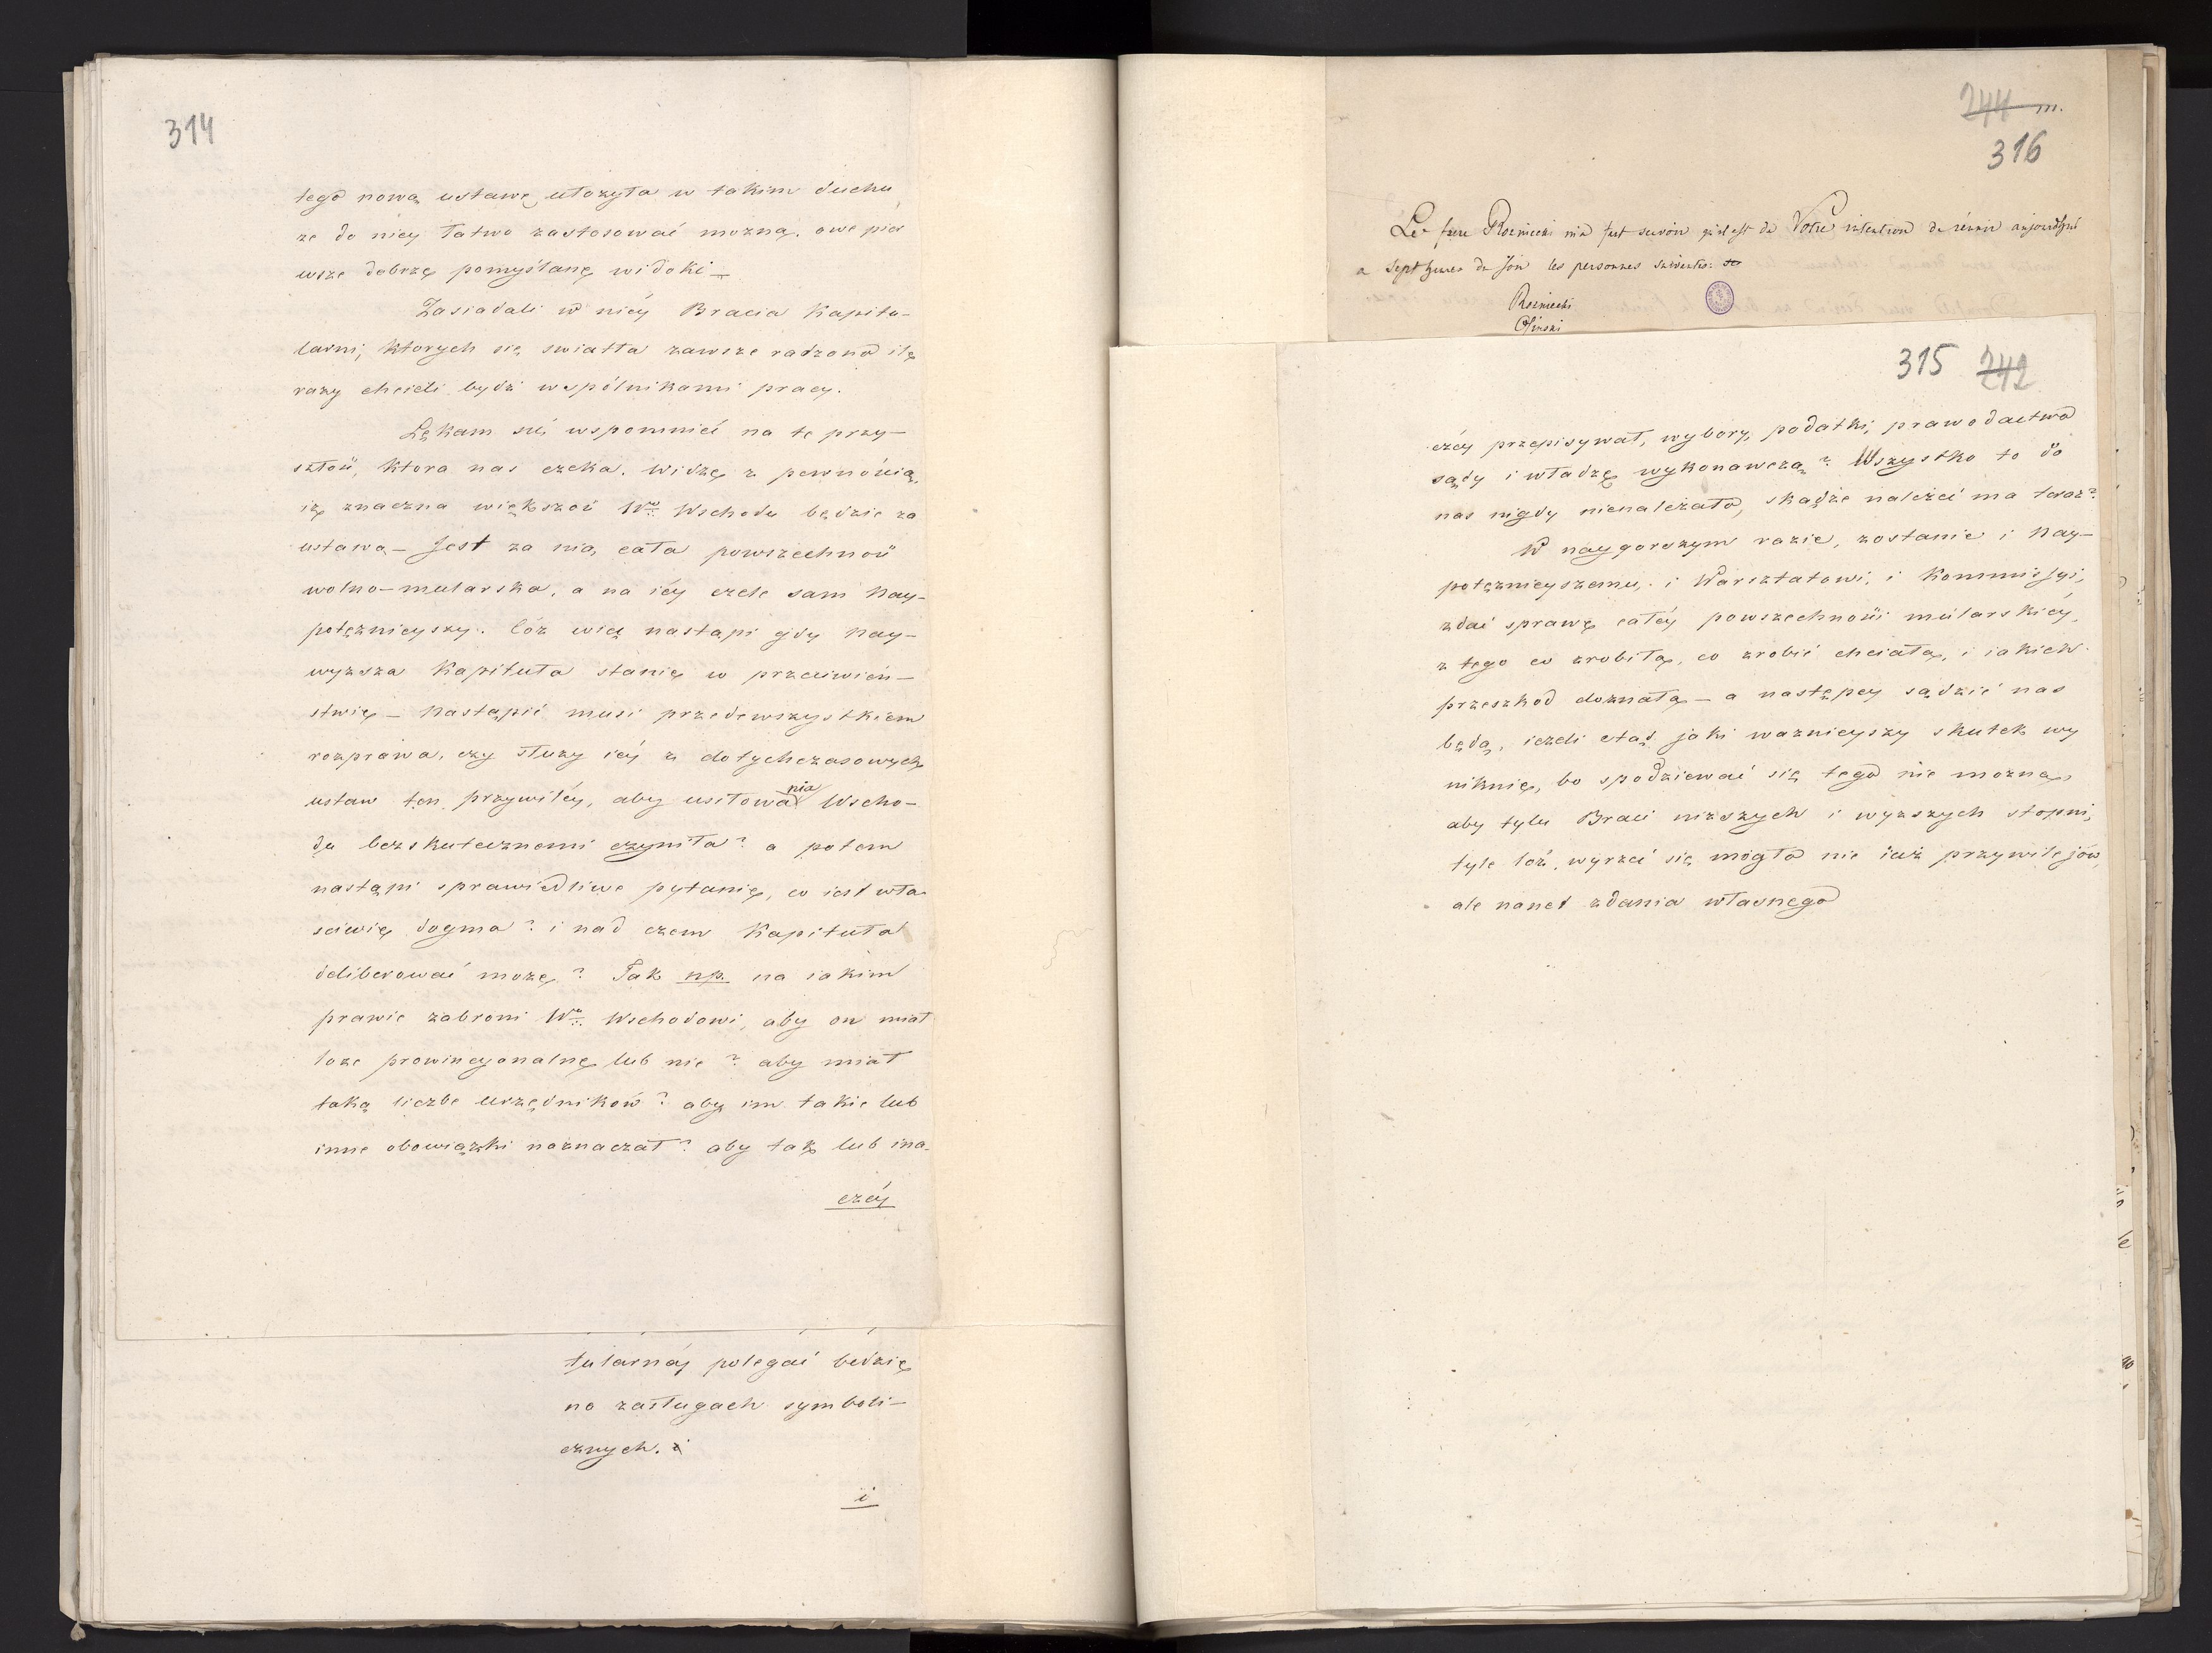 314
tego nową ustawę utożyła w takim duchu,
że do niey łatwo zastosować można, owe pier
wsze dobrze pomyślane widoki —
Zasiadali w niéy Bracia Kapitu-
larni, ktorych się swiatła zawsze radzono ile
razy chcieli bydź wspólnikami pracy.
Lękam się wspomnieć na tę przy-
szłość, ktora nas czeka. Widzę z pewnością,
iż znaczna większość Wo Wschodu będzie za
ustawą — Jest za nią cała powszechność
wolno-mularska, a na iéy czele sam Nay-
potężnieyszy. Cóż więc nastąpi gdy Nay-
wyższa Kapituła stanie w przeciwień-
stwie — Nastąpić musi przedewszystkiem
rozprawa, czy służy iéy z dotychczasowych
ustaw ten przywiléy, aby usiłowania Wscho-
du bezskutecznemi czyniła? a potem
nastąpi sprawiedliwe pytanie, co iest wła
sciwie dogma? i nad czem Kapituła
deliberować może? Tak np. na iakim
prawie zabroni Wu Wschodowi, aby on miał
loże prowincyonalne lub nie? aby miał
taką liczbe urzędników? aby im takie lub
inne obowiązki naznaczał? aby tak lub ina-
czéy
tularnéj polegać będzie
na zasługach symboli-
cznych.
i
244 m.
316
Le frere Rozniecki
a sept heures du soir les personnes suivantes:
Rozniecki
Osinski
315 242
czéy przepisywał, wybory, podatki, prawodactwo
sądy i władzę wykonawczą? Wszystko to do
nas nigdy nienależało, skądże należeć ma teraz?
W naygorszym razie, zostanie i Nay-
potężnieyszemu, i Warsztatowi, i Kommissyi,
zdać sprawę całéy powszechności mularskiéy,
z tego co zrobiła, co zrobić chciała, i iakich
przeszkod doznała — a następcy sądzić nas
będą, ieżeli stąd jaki ważnieyszy skutek wy
niknie, bo spodziewać się tego nie można,
aby tylu Braci niższych i wyższych stopni,
tyle lóż, wyrzec się mogło nie iuż przywilejów,
ale nawet zdania własnego